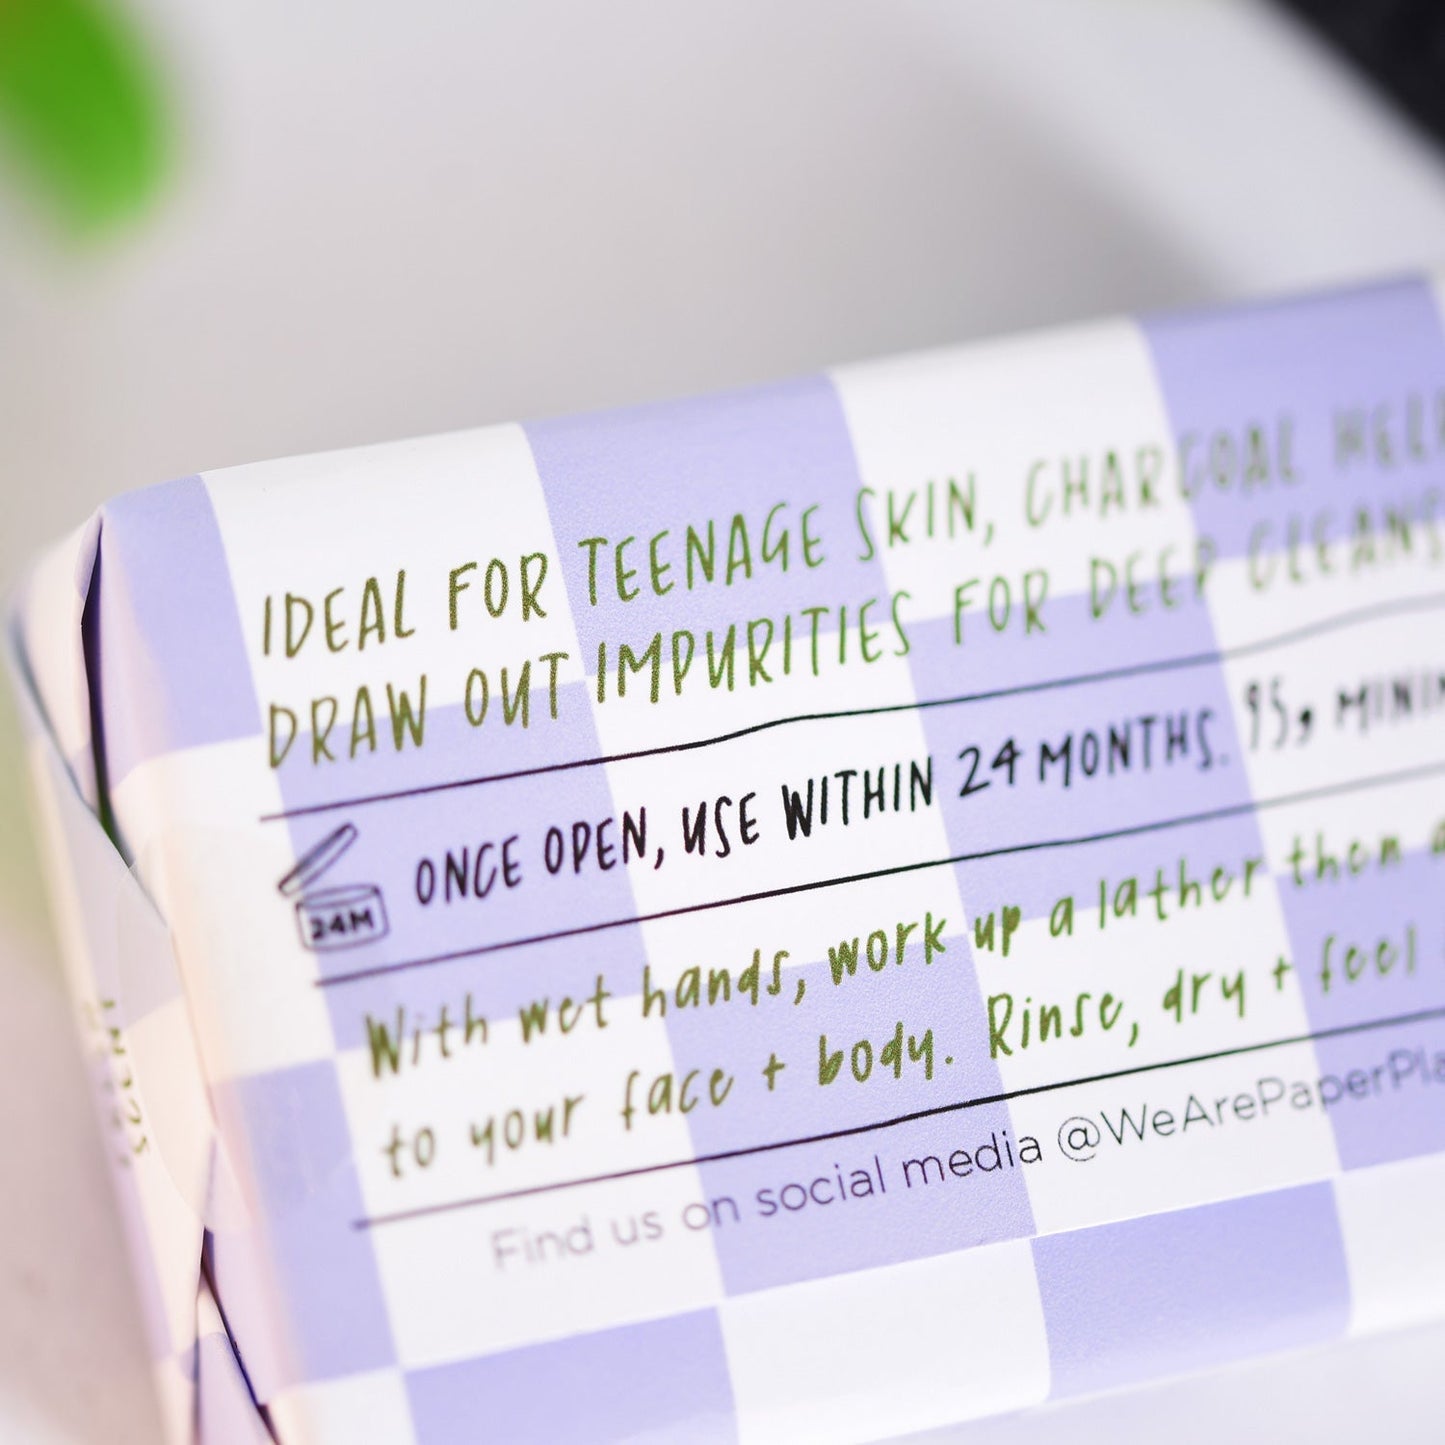 IDEAL FOR TEENAGE SKIN, CHARCOAL HELP
DRAW OUT IMPURITIES FOR DEEP CLEANS
24M
ONCE OPEN, USE WITHIN 24 MONTHS. 95g MINIM
With wet hands, work up a lather then a
to your face + body. Rinse, dry + feel
Find us on social media @WeArePaperPla